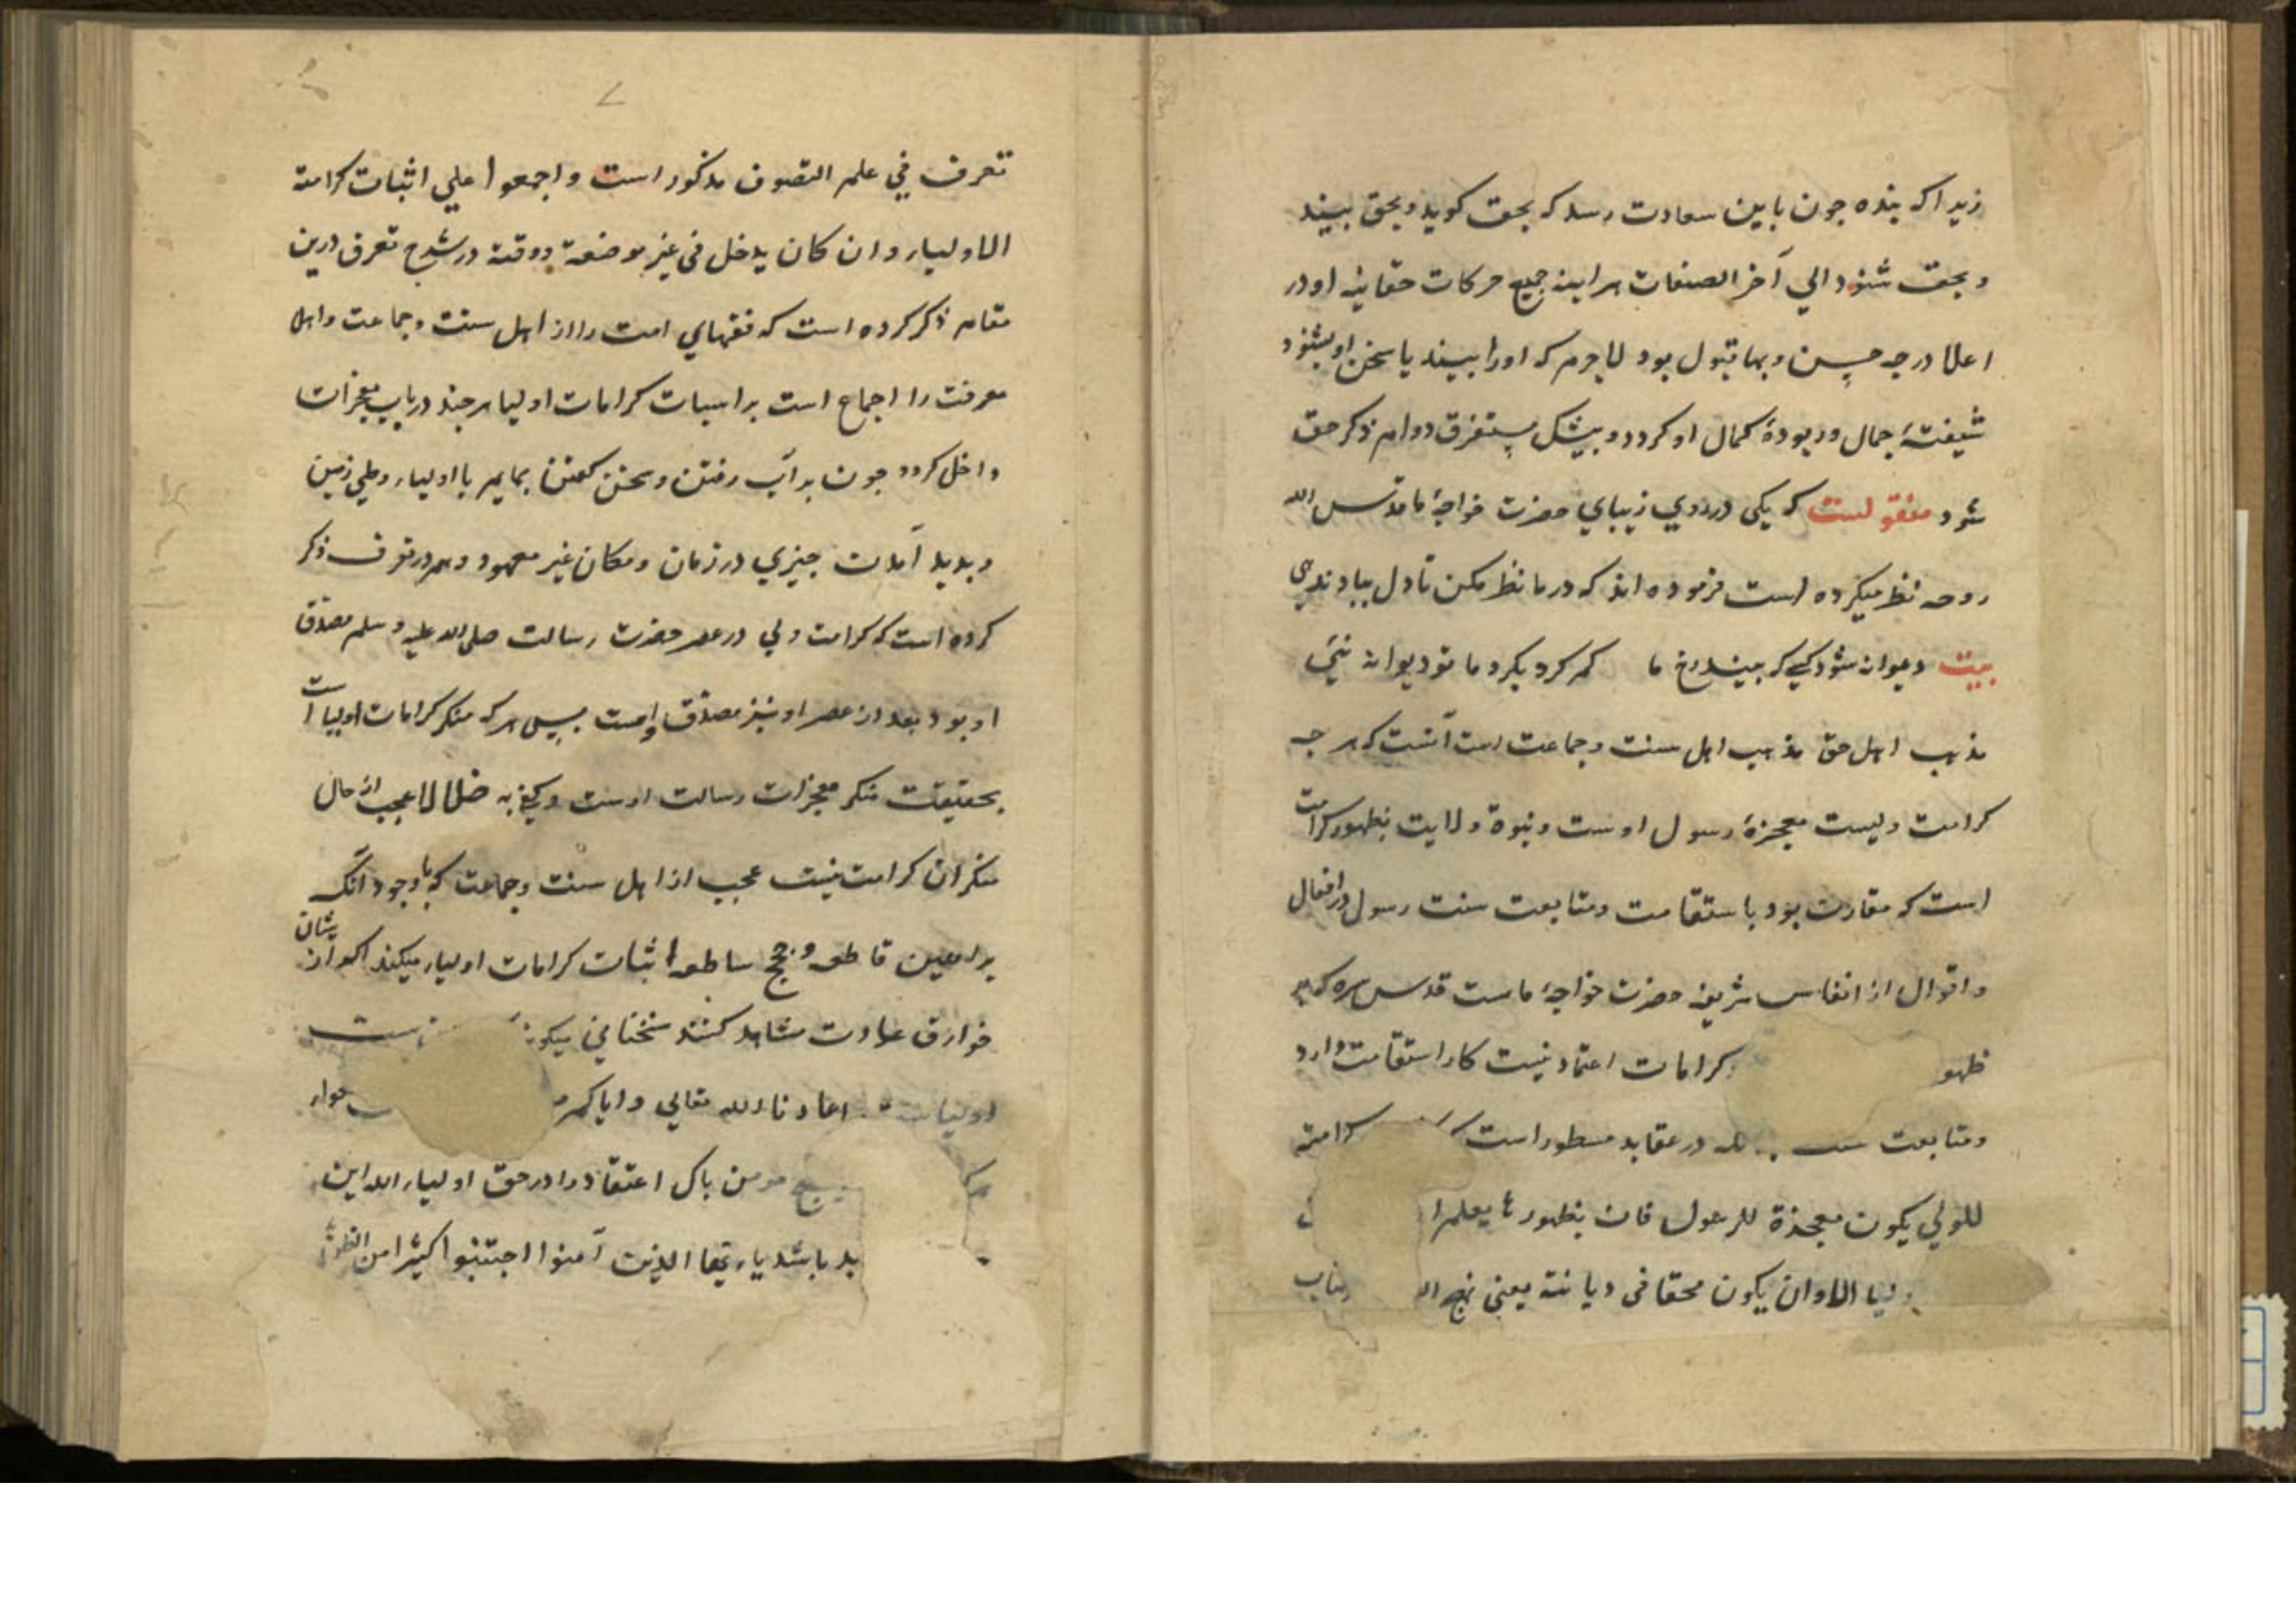 زیرا که بنده چون باین سعادت رسد که بحق کوید و بحق بیند
و بحق شنود الی آخر الصفات هر اینه جمیع حرکات حقانیه او در
اعلا درجه حسن و بها قبول بود لاجرم که اورا بیند یا سخن او بشنود
شیفتهٔ جمال و ربودهٔ کمال او کردد و بیشک مستغرق دوام ذکر حق
شود منقولست که یکی در روی زیبای حضرت خواجهٔ ما قدس الله
روحه نظر میکرده است فرموده اند که در ما نظر مکن تا دل بباد ندهی
بیت دیوانه شود کسی که بیند رخ ما کم کرد بکرد ما تو دیوانه نئی
مذهب اهل حق مذهب اهل سنت و جماعت است آنست که هر چه
کرامت ولیست معجزهٔ رسول اوست و نبوة ولایت بظهور کرامت
است که مقارن بود با ستقامت و متابعت سنت رسول در افعال
و اقوال از انفاس شریفه حضرت خواجهٔ ماست قدس سره که بر
ظهو کرامات اعتماد نیست کار استقامت دارد
و متابعت در عقاید مسطور است کرامته
للولی یکون معجزة للرسول فان بظهورها یعلم
الا وان یکون محقا فی دیانته یعنی
تعرف فی علم التصوف مذکور است و اجمعوا علی اثبات کرامة
الاولیاء وان کان یدخل فی غیر موضعه و وقته در شرح تعرف درین
مقام ذکر کرده است که فقهای امت را از اهل سنت و جماعت و اهل
معرفت را اجماع است بر اسبات کرامات اولیا هر چند در باب معجزات
داخل کردد چون بر آب رفتن و سخن کفتن بهایم با اولیاء و طی زمین
و بدید آمدن چیزی در زمان و مکان غیر معهود و هم در تعرف ذکر
کرده است که کرامت ولی در عصر حضرت رسالت صلی الله علیه و سلم مصدق
او بود بعد از عصر او نیز مصدق اوست پس هر که منکر کرامات اولیا است
بحقیقت منکر معجزات رسالت اوست و کفی به ضلالا عجب از حال
منکران کرامت نیست عجب از اهل سنت و جماعت که با وجود آنک
براهین قاطعه و حجج ساطعه اثبات کرامات اولیاء میکنند اکر از یشان
خوارق عادت مشاهد کنند سخنانی میکو
اولیا اعاذنا الله تعالی و ایاکم
مومن باک اعتقاد را در حق اولیاء الله این
بد باشد یا ایها الذین آمنوا اجتنبوا کثیرا من الظن